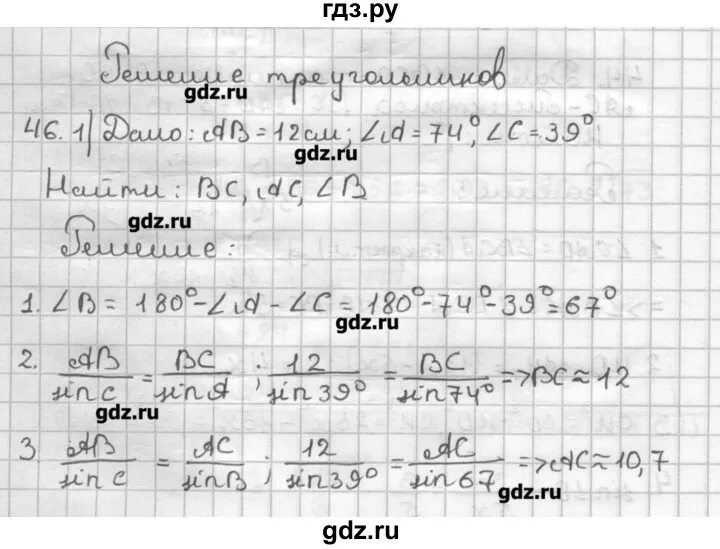 гдз.ру
Решение треугольников
gdz.ru
46. 1) Дано: AB = 12см; ∠A = 74°, ∠C = 39°
gdz.ru
Найти: BC, AC, ∠B
gdz.ru
Решение:
1. ∠B = 180° - ∠A - ∠C = 180° - 74° - 39° = 67°
gdz.ru
2. AB/sin C = BC/sin A ; 12/sin 39° = BC/sin 74° => BC ≈ 12
gdz.ru
3. AB/sin C = AC/sin B ; 12/sin 39° = AC/sin 67 => AC ≈ 10,7
gdz.ru
gdz.ru